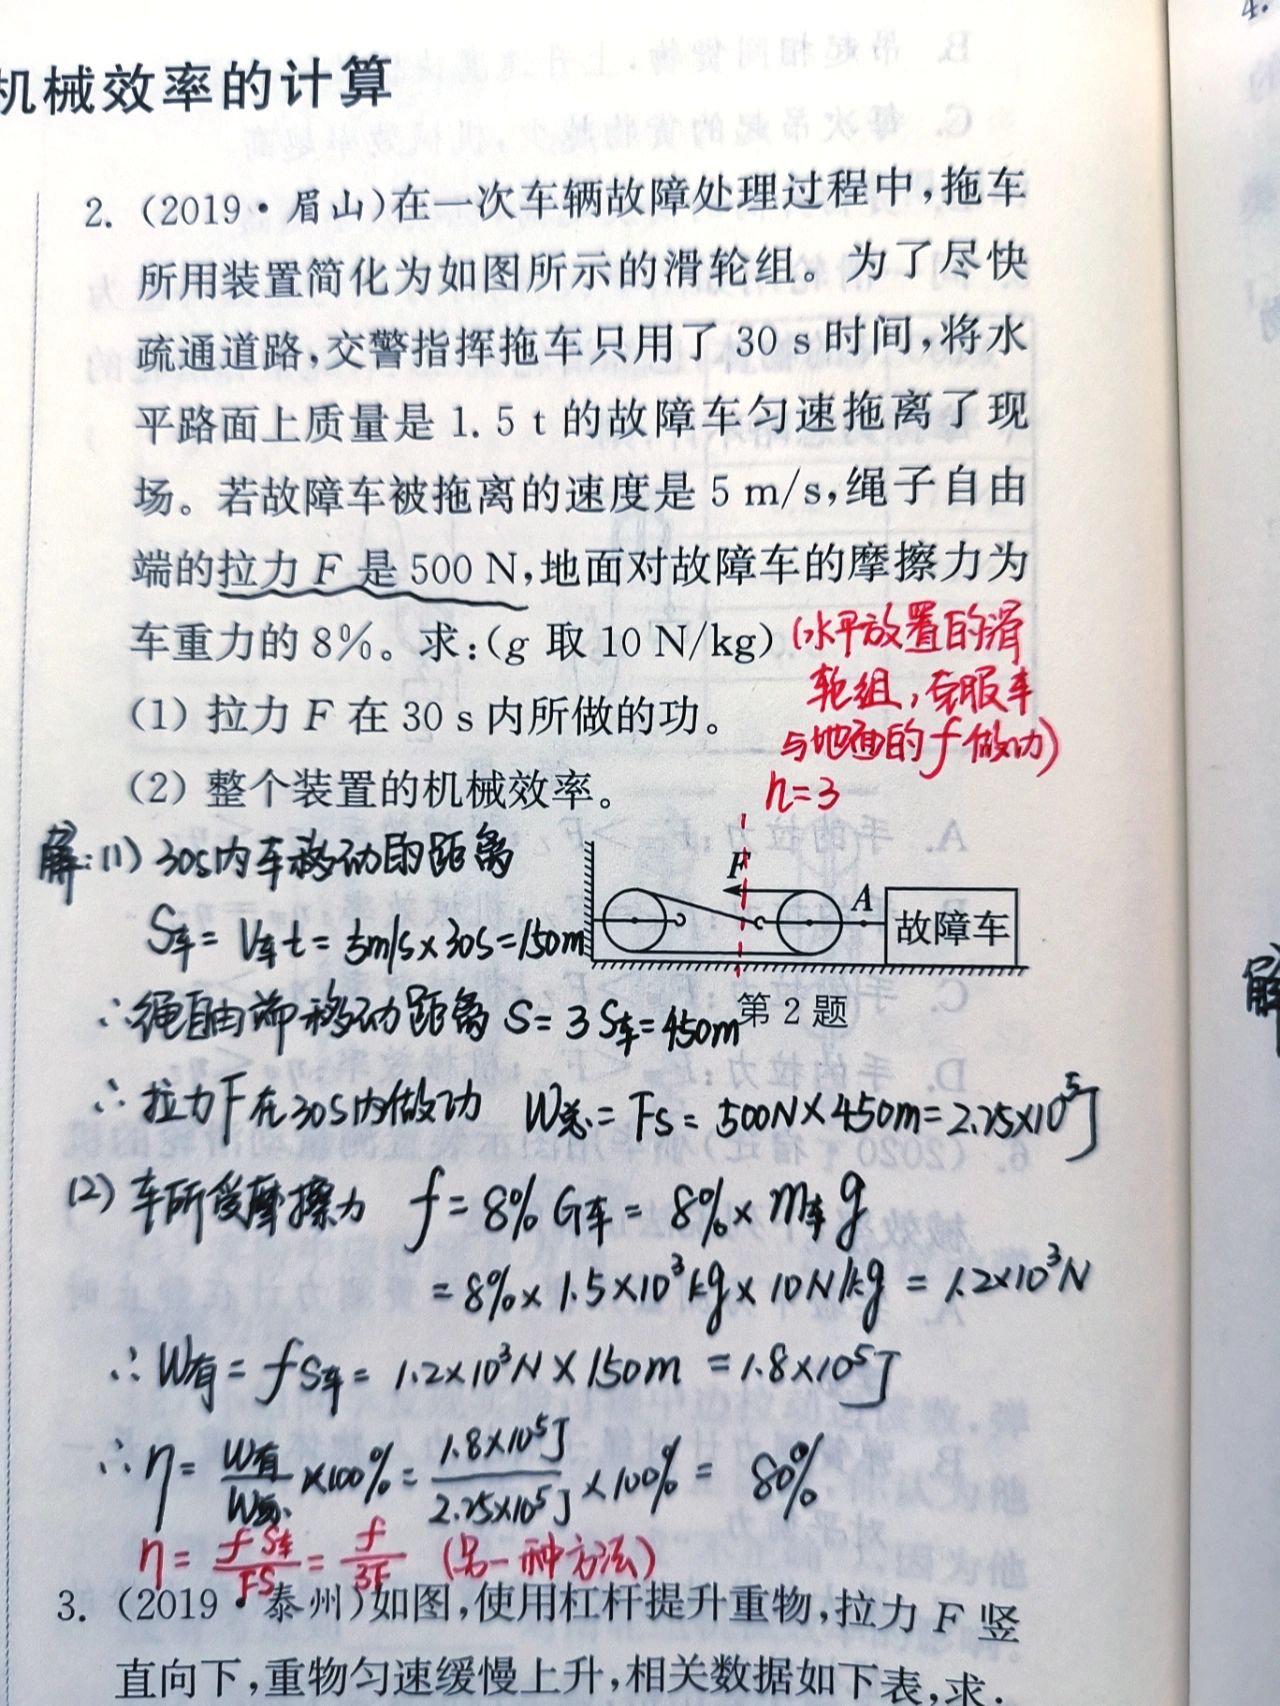 机械效率的计算
2. (2019·眉山)在一次车辆故障处理过程中,拖车
所用装置简化为如图所示的滑轮组。为了尽快
疏通道路,交警指挥拖车只用了 30 s 时间,将水
平路面上质量是 1.5 t 的故障车匀速拖离了现
场。若故障车被拖离的速度是 5 m/s,绳子自由
端的拉力 F 是 500 N,地面对故障车的摩擦力为
车重力的 8%。求:(g 取 10 N/kg)
(水平放置的滑
轮组,克服车
与地面的f做功)
n=3
(1) 拉力 F 在 30 s 内所做的功。
(2) 整个装置的机械效率。
F
A
故障车
第 2 题
解:(1) 30s内车移动的距离
S车= V车t = 5m/s×30s=150m
∴绳自由端移动距离 S= 3S车=450m
∴拉力F在30s内做功 W总= Fs= 500N×450m=2.25×10⁵J
(2) 车所受摩擦力 f= 8%G车= 8%×m车g
= 8%×1.5×10³kg×10N/kg = 1.2×10³N
∴W有= fS车= 1.2×10³N×150m =1.8×10⁵J
∴η= W有/W总 ×100%= 1.8×10⁵J/2.25×10⁵J ×100% = 80%
η= fS车/FS = f/3F (另一种方法)
3. (2019·泰州)如图,使用杠杆提升重物,拉力 F 竖
直向下,重物匀速缓慢上升,相关数据如下表,求:
解